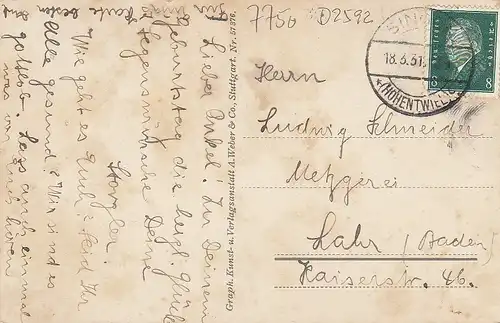 7750 D2592
SINGEN
18.3.31.
(HOHENTWIEL)
Deutsches Reich
8 8
Herrn
Ludwig Schneider
Metzgerei
Lahr (Baden)
Kaiserstr. 46.
Graph. Kunst- u. Verlagsanstalt A. Weber & Co., Stuttgart. Nr. 57376.
Lieber Onkel! Zu Deinem
Geburtstag die herzl. Glück
u. Segenswünsche Deine
Wie geht es Euch? Seid Ihr
alle gesund? Wir sind es
gottlob. Lass auch einmal
was von Euch hören
Karte besten